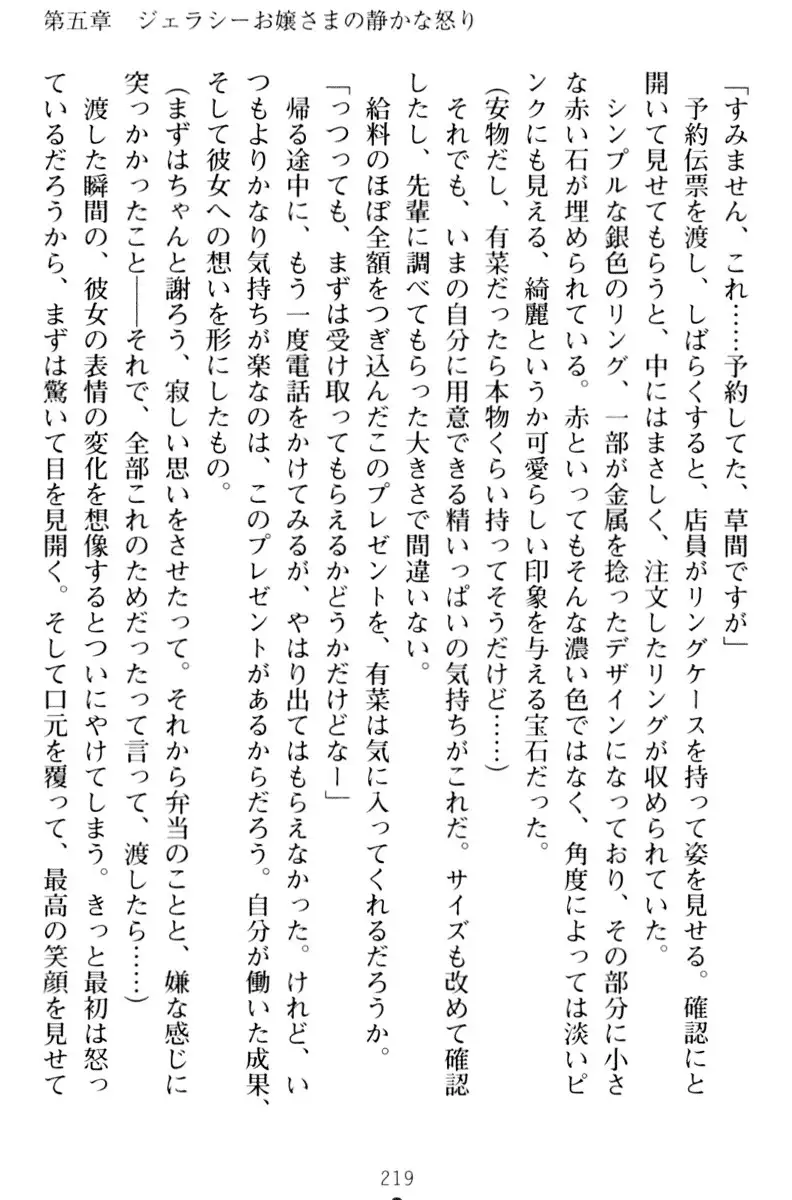 第五章　ジェラシーお嬢さまの静かな怒り
「すみません、これ……予約してた、草間ですが」
　予約伝票を渡し、しばらくすると、店員がリングケースを持って姿を見せる。確認にと
開いて見せてもらうと、中にはまさしく、注文したリングが収められていた。
　シンプルな銀色のリング、一部が金属を捻ったデザインになっており、その部分に小さ
な赤い石が埋められている。赤といってもそんな濃い色ではなく、角度によっては淡いピ
ンクにも見える、綺麗というか可愛らしい印象を与える宝石だった。
（安物だし、有菜だったら本物くらい持ってそうだけど……）
　それでも、いまの自分に用意できる精いっぱいの気持ちがこれだ。サイズも改めて確認
したし、先輩に調べてもらった大きさで間違いない。
　給料のほぼ全額をつぎ込んだこのプレゼントを、有菜は気に入ってくれるだろうか。
「っつっても、まずは受け取ってもらえるかどうかだけどなー」
　帰る途中に、もう一度電話をかけてみるが、やはり出てはもらえなかった。けれど、い
つもよりかなり気持ちが楽なのは、このプレゼントがあるからだろう。自分が働いた成果、
そして彼女への想いを形にしたもの。
（まずはちゃんと謝ろう、寂しい思いをさせたって。それから弁当のことと、嫌な感じに
突っかかったこと――それで、全部これのためだったって言って、渡したら……）
　渡した瞬間の、彼女の表情の変化を想像するとついにやけてしまう。きっと最初は怒っ
ているだろうから、まずは驚いて目を見開く。そして口元を覆って、最高の笑顔を見せて
219